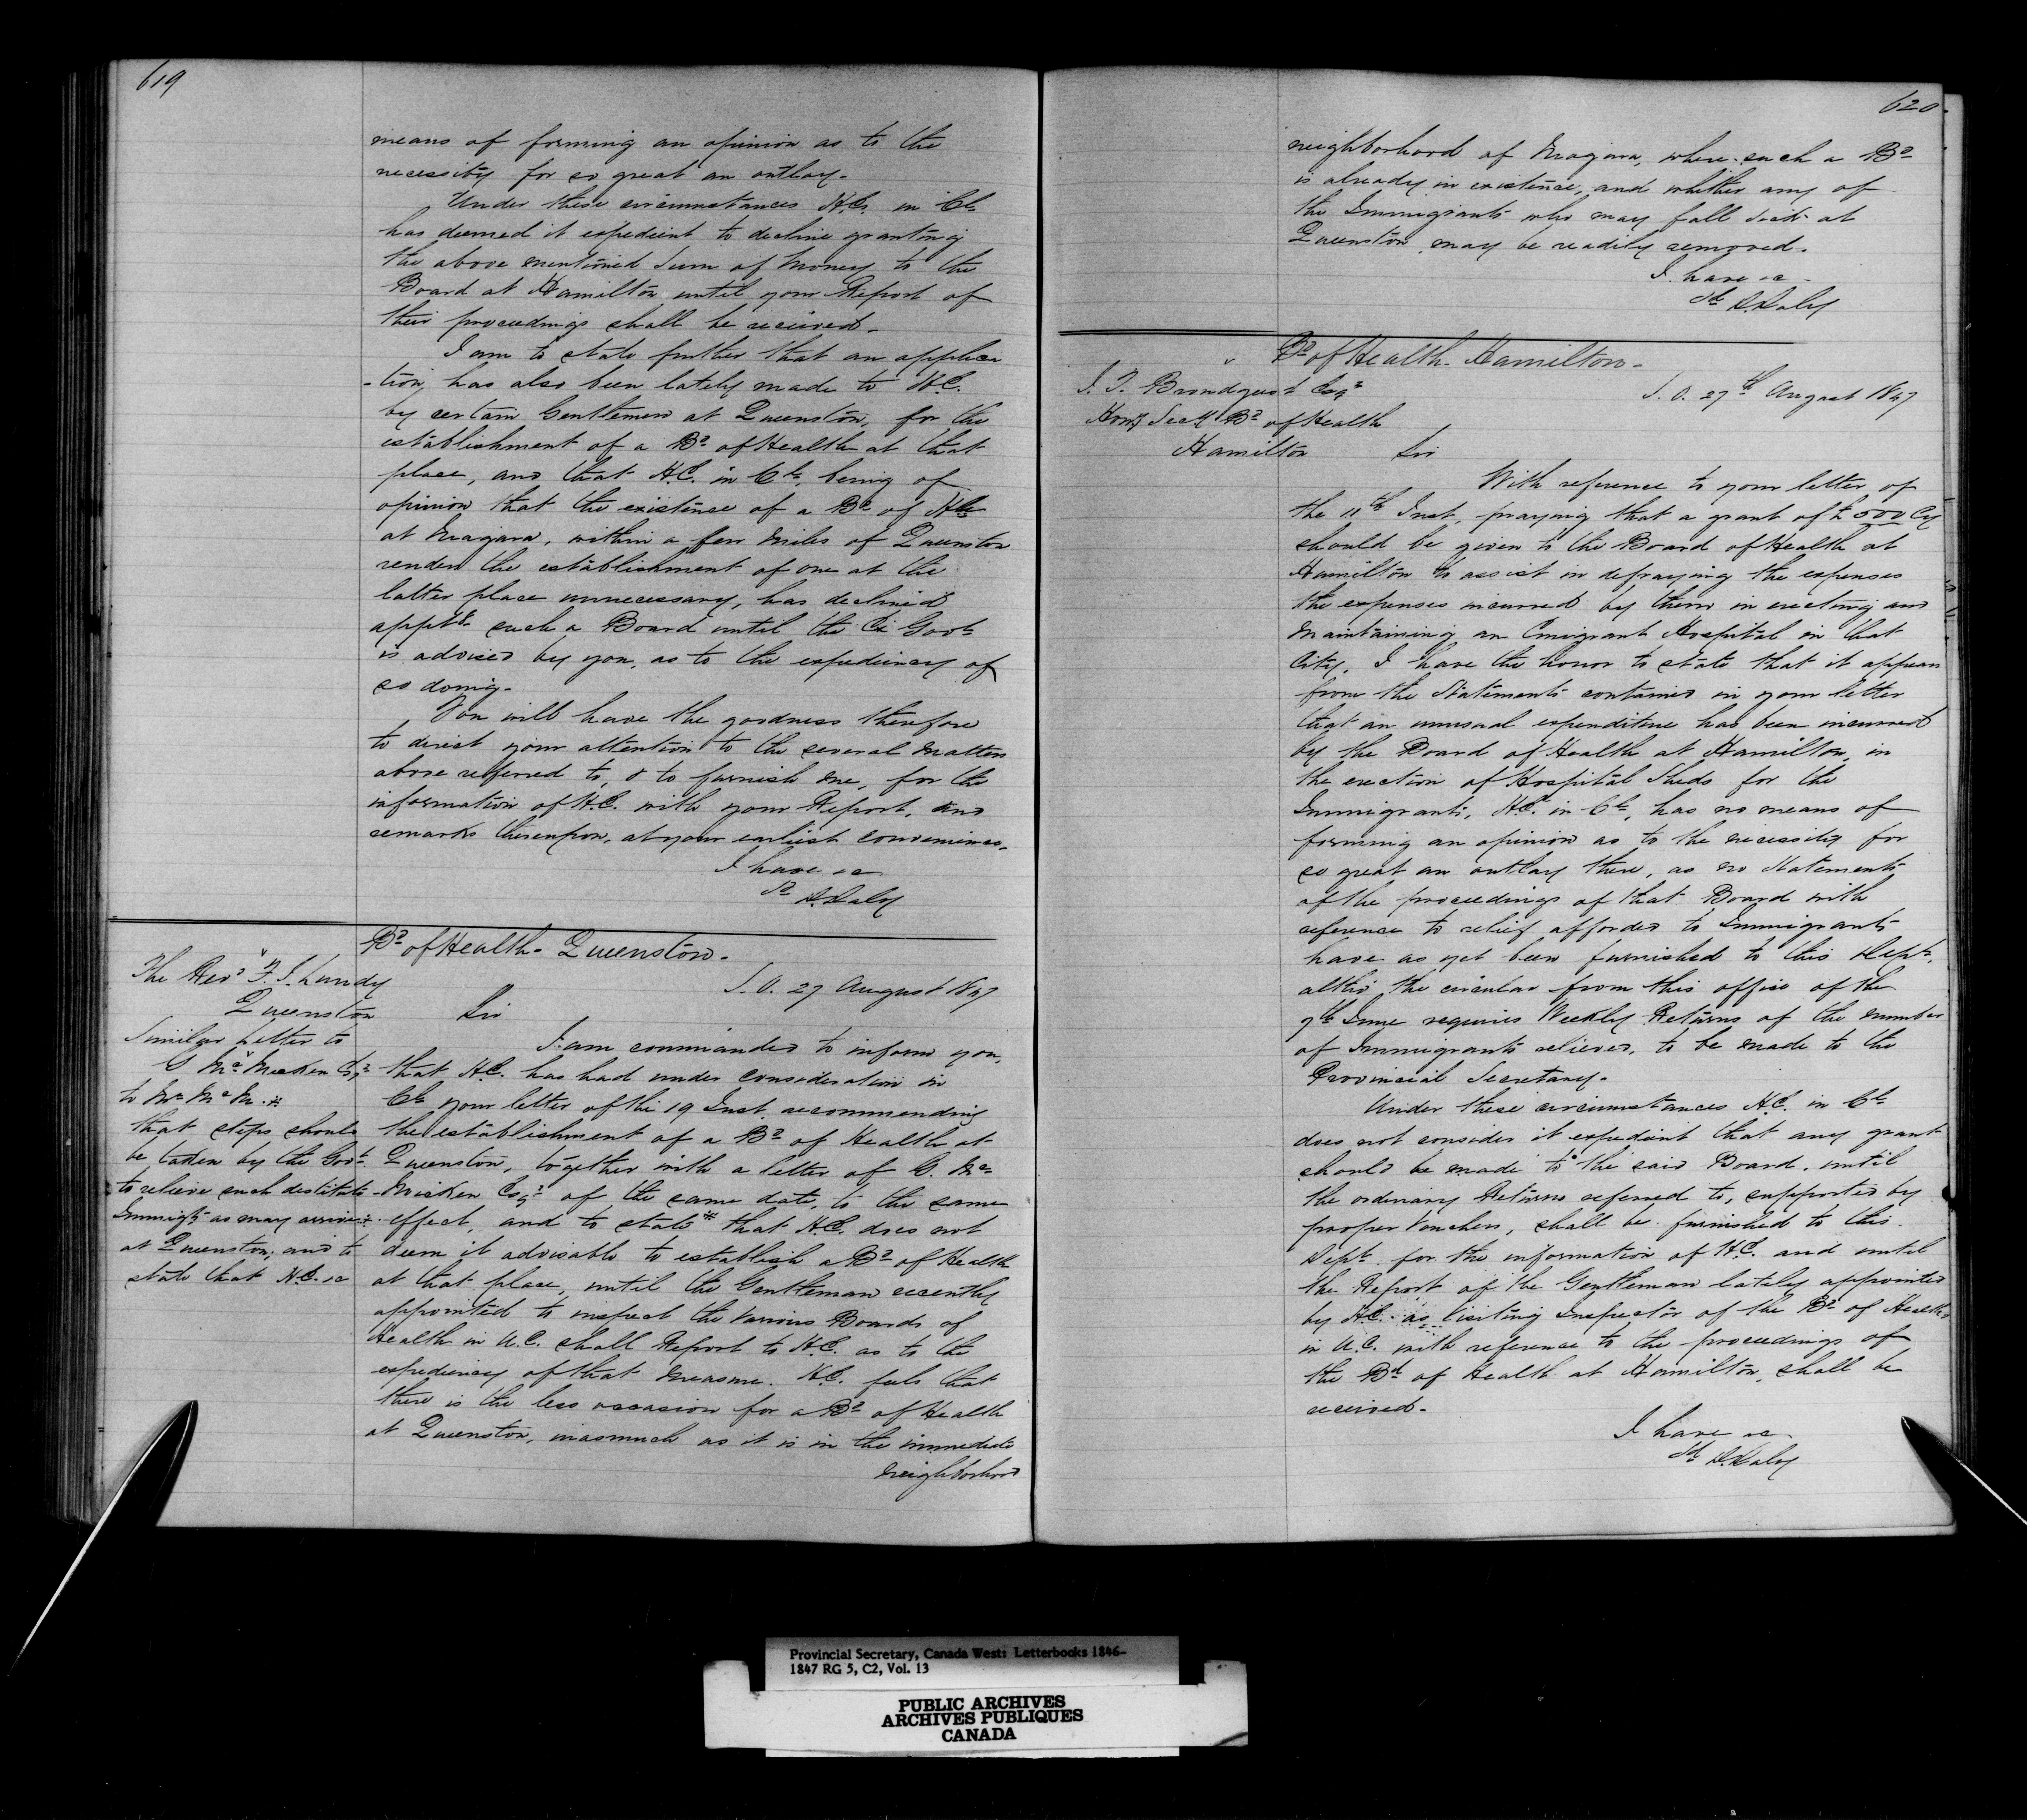 619
means of forming an opinion as to the
necessity for so great an outlay.
Under these circumstances H.E. in Cl.
has deemed it expedient to decline granting
the above mentioned Sum of Money to the
Board at Hamilton until your Report of
their proceedings shall be received.
I am to state further that an applica
-tion, has also been lately made to H.E.
by certain Gentlemen at Queenston, for the
establishment of a Bd of Health at that
place, and that H.E. in Cl. being of
opinion that the existence of a Bd of Hlth
at Niagara, within a few Miles of Queenston
renders the establishment of one at the
latter place unnecessary, has declined
apptg such a Board until the Ex Govt
is advised by you, as to the expediency of
so doing.
You will have the goodness therefore
to direct your attention to the several Matters
above referred to, & to furnish me, for the
information of H.E. with your Report, and
remarks thereupon, at your earliest convenience.
I have &c
Sd D. Daly
Bd of Health - Queenston.
The Revd F. J. Lundy
Queenston
S.O. 27 August 1847
Sir
Similar Letter to
G Mc Micken Esqr
to Mr McM. *
that steps should
be taken by the Govt
to relieve such destitute
Immigts as may arrive
at Queenston, and to
state that H.E. &c
I am commanded to inform you,
that H.E. has had under consideration in
Cl. your letter of the 19 Inst. recommending
the establishment of a Bd of Health at
Queenston, together with a letter of G. Mc
Micken Esqr of the same date, to the same
effect, and to state * that H.E. does not
deem it advisable to establish a Bd of Health
at that place, until the Gentleman recently
appointed to inspect the various Boards of
Health in U.C. shall Report to H.E. as to the
expediency of that Measure. H.E. feels that
there is the less occasion for a Bd of Health
at Queenston, inasmuch as it is in the immediate
neighborhood
620
neighborhood of Niagara, where such a Bd
is already in existence, and whither any of
the Immigrants who may fall sick at
Queenston may be readily removed.
I have &c
Sd D. Daly
Bd of Health - Hamilton.
J. T. Brondgeest Esqr
Hony Secy Bd of Health
Hamilton
S.O. 27th August 1847
Sir
With reference to your letter of
the 11th Inst, praying that a grant of £500 Cy
should be given to the Board of Health at
Hamilton to assist in defraying the expenses
the expenses incurred by them in erecting and
Maintaining an Emigrant Hospital in that
City, I have the honor to state that it appears
from the Statements contained in your letter
that an unusual expenditure has been incurred
by the Board of Health at Hamilton, in
the erection of Hospital Sheds for the
Immigrants, H.E. in Cl., has no means of
forming an opinion as to the necessity for
so great an outlay there, as no Statements
of the proceedings of that Board with
reference to relief afforded to Immigrants
have as yet been furnished to this Dept,
altho' the circular from this office of the
9th June requires Weekly Returns of the number
of Immigrants relieved, to be made to the
Provincial Secretary.
Under these circumstances H.E. in Cl.
does not consider it expedient that any grant
should be made to the said Board, until
the ordinary Returns referred to, supported by
proper Vouchers, shall be furnished to this
Dept. for the information of H.E. and until
the Report of the Gentleman lately appointed
by H.E. as Visiting Inspector of the Bds of Health
in U.C. with reference to the proceedings of
the Bd of Health at Hamilton, shall be
received.
I have &c
Sd D. Daly
Provincial Secretary, Canada West: Letterbooks 1846-
1847 RG 5, C2, Vol. 13
PUBLIC ARCHIVES
ARCHIVES PUBLIQUES
CANADA